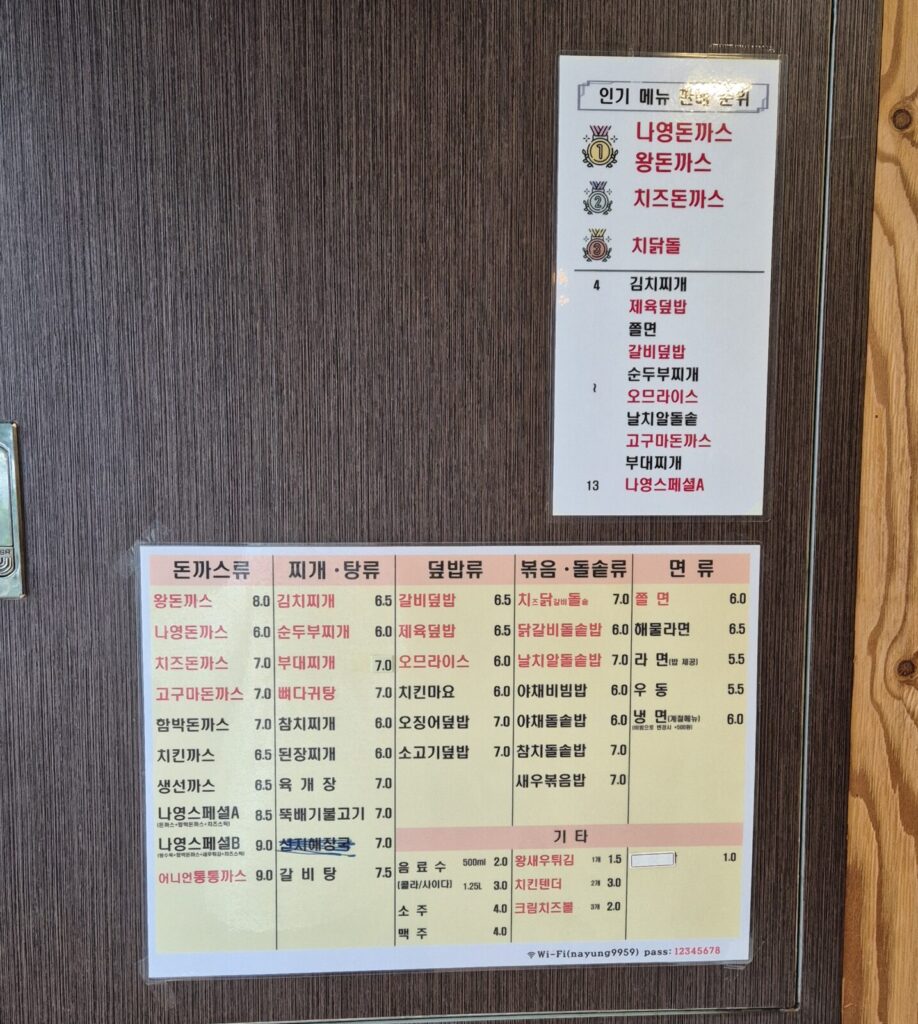 인기 메뉴 판매 순위
1 나영돈까스
왕돈까스
2 치즈돈까스
3 치닭돌
4 김치찌개
제육덮밥
쫄면
갈비덮밥
순두부찌개
~ 오므라이스
날치알돌솥
고구마돈까스
부대찌개
13 나영스페셜A
돈까스류
왕돈까스 8.0
나영돈까스 6.0
치즈돈까스 7.0
고구마돈까스 7.0
함박돈까스 7.0
치킨까스 6.5
생선까스 6.5
나영스페셜A 8.5
(돈까스+함박돈까스+치즈스틱)
나영스페셜B 9.0
어니언통통까스 9.0
찌개·탕류
김치찌개 6.5
순두부찌개 6.0
부대찌개 7.0
뼈다귀탕 7.0
참치찌개 6.0
된장찌개 6.0
육개장 7.0
뚝배기불고기 7.0
선지해장국 7.0
갈비탕 7.5
덮밥류
갈비덮밥 6.5
제육덮밥 6.5
오므라이스 6.0
치킨마요 6.0
오징어덮밥 7.0
소고기덮밥 7.0
볶음·돌솥류
치즈닭갈비돌솥 7.0
닭갈비돌솥밥 6.0
날치알돌솥밥 7.0
야채비빔밥 6.0
야채돌솥밥 6.0
참치돌솥밥 7.0
새우볶음밥 7.0
면류
쫄면 6.0
해물라면 6.5
라면(밥 제공) 5.5
우동 5.5
냉면(계절메뉴) 6.0
(비빔으로 변경시 +500원)
기타
음료수 500ml 2.0
(콜라/사이다) 1.25L 3.0
소주 4.0
맥주 4.0
왕새우튀김 1개 1.5
치킨텐더 2개 3.0
크림치즈볼 3개 2.0
1.0
Wi-Fi(nayung9959) pass: 12345678